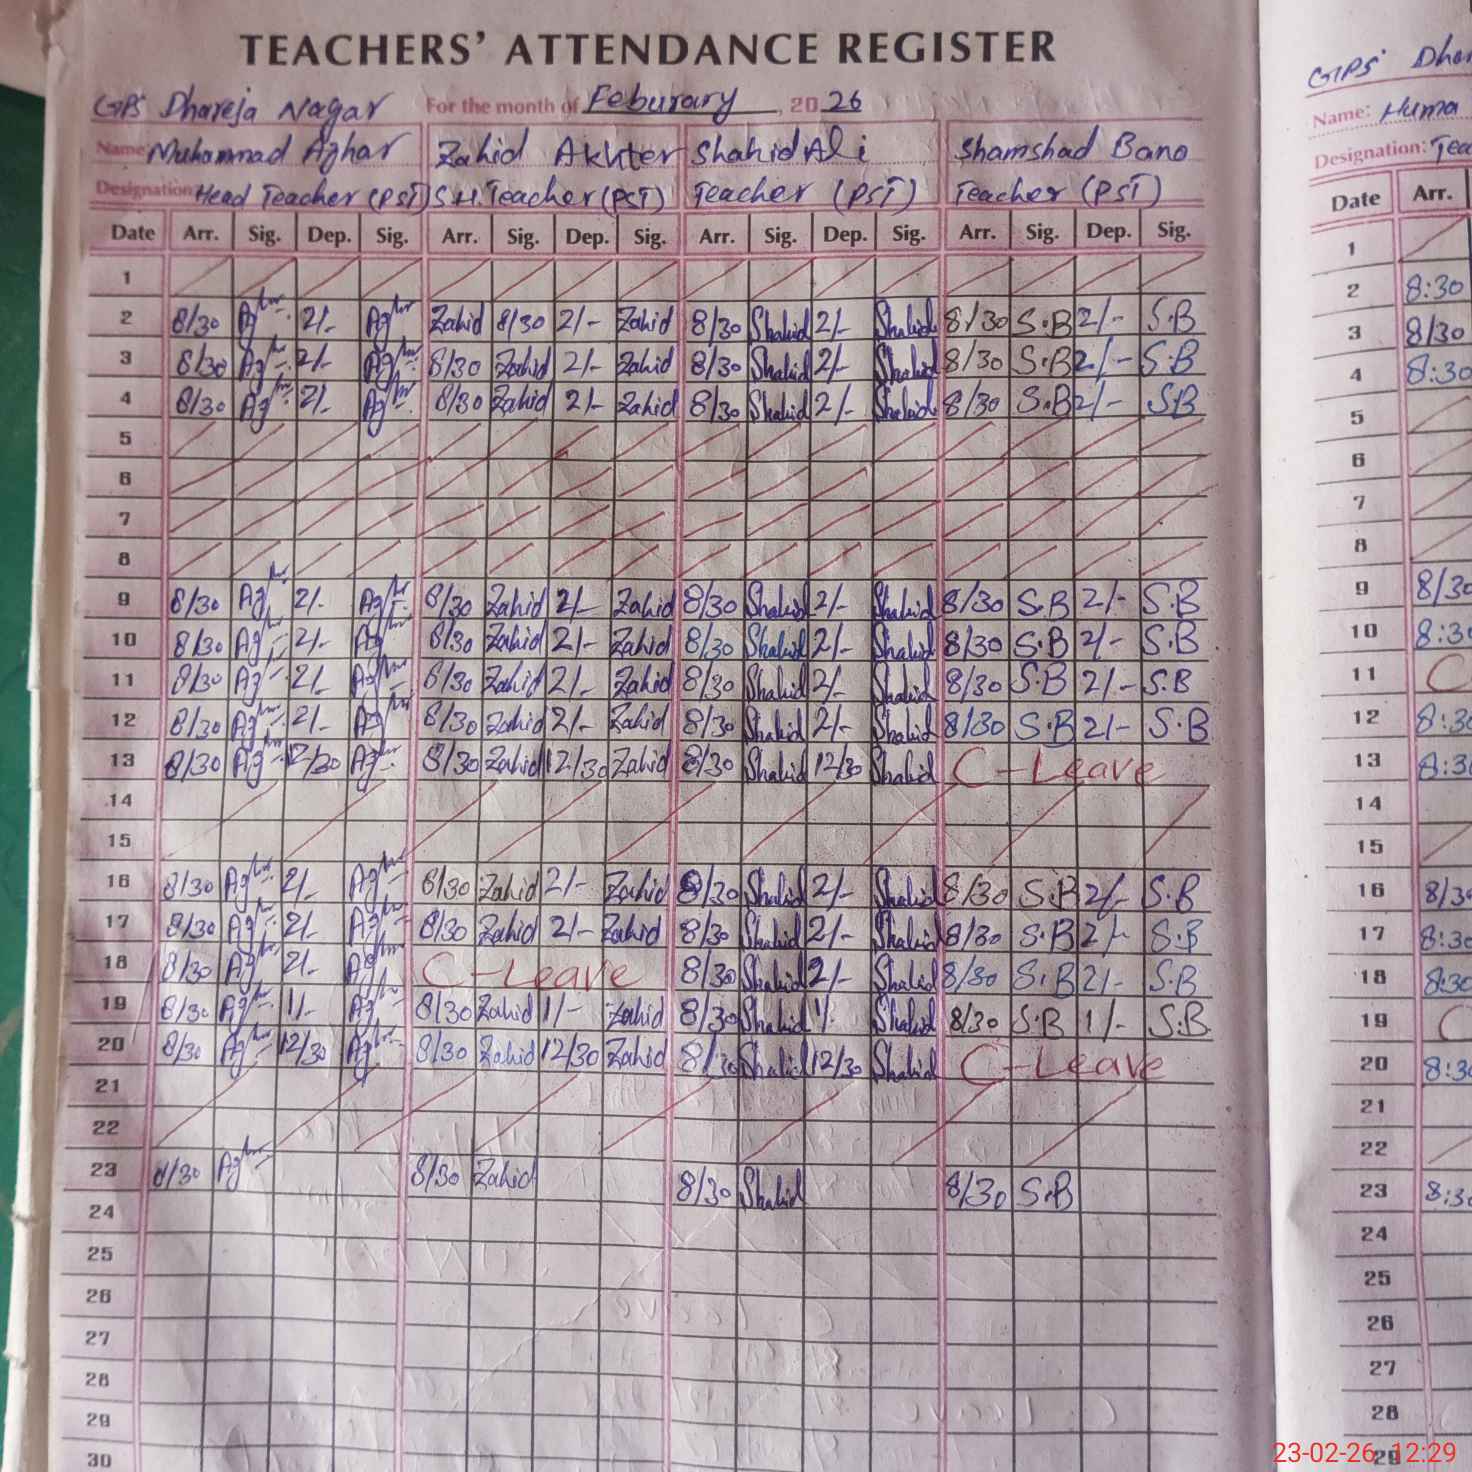 TEACHERS' ATTENDANCE REGISTER
GPS Dhareja Nagar For the month of Feburary 20 26
Name: Muhammad Azhar Zahid Akhter Shahid Ali Shamshad Bano
Designation: Head Teacher (PST) S.H. Teacher (PST) Teacher (PST) Teacher (PST)
Date Arr. Sig. Dep. Sig. Arr. Sig. Dep. Sig. Arr. Sig. Dep. Sig. Arr. Sig. Dep. Sig.
1
2 8/30 2/- Zahid 8/30 2/- Zahid 8/30 Shahid 2/- Shahid 8/30 S.B 2/- S.B
3 8/30 2/- 8/30 Zahid 2/- Zahid 8/30 Shahid 2/- Shahid 8/30 S.B 2/- S.B
4 8/30 2/- 8/30 Zahid 2/- Zahid 8/30 Shahid 2/- Shahid 8/30 S.B 2/- S.B
5
6
7
8
9 8/30 2/- 8/30 Zahid 2/- Zahid 8/30 Shahid 2/- Shahid 8/30 S.B 2/- S.B
10 8/30 2/- 8/30 Zahid 2/- Zahid 8/30 Shahid 2/- Shahid 8/30 S.B 2/- S.B
11 8/30 2/- 8/30 Zahid 2/- Zahid 8/30 Shahid 2/- Shahid 8/30 S.B 2/- S.B
12 8/30 2/- 8/30 Zahid 2/- Zahid 8/30 Shahid 2/- Shahid 8/30 S.B 2/- S.B
13 8/30 12/30 8/30 Zahid 12/30 Zahid 8/30 Shahid 12/30 Shahid C-Leave
14
15
16 8/30 2/- 8/30 Zahid 2/- Zahid 8/30 Shahid 2/- Shahid 8/30 S.B 2/- S.B
17 8/30 2/- 8/30 Zahid 2/- Zahid 8/30 Shahid 2/- Shahid 8/30 S.B 2/- S.B
18 8/30 2/- C-Leave 8/30 Shahid 2/- Shahid 8/30 S.B 2/- S.B
19 8/30 1/- 8/30 Zahid 1/- Zahid 8/30 Shahid 1/- Shahid 8/30 S.B 1/- S.B
20 8/30 12/30 8/30 Zahid 12/30 Zahid 8/30 Shahid 12/30 Shahid C-Leave
21
22
23 8/30 8/30 Zahid 8/30 Shahid 8/30 S.B
24
25
26
27
28
29
30
GPS
Name: Huma
Designation:
Date Arr.
1
2 8:30
3 8/30
4 8:30
5
6
7
8
9 8/30
10 8:30
11 C
12 8:30
13 8:30
14
15
16 8/30
17 8:30
18 8:30
19 C
20 8:30
21
22
23 8:30
24
25
26
27
28
29
23-02-26 12:29